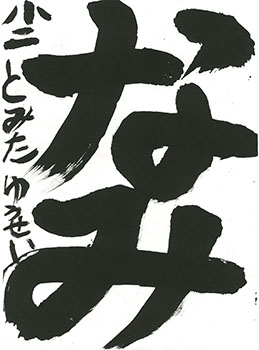 なみ
小二 とみた ゆうせい